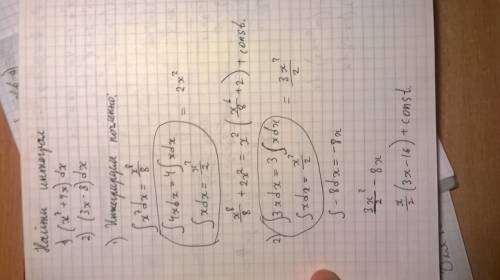 Найти интеграл
1) (x⁷+4x) dx
2) (3x-8) dx
1) Интегрируем почленно:
∫x⁷dx = x⁸/8
∫4xdx = 4∫xdx = 2x²
∫xdx = x²/2
x⁸/8 + 2x² = x²(x⁶/8 + 2) + const.
2) ∫3xdx = 3∫xdx = 3x²/2
∫xdx = x²/2
∫-8dx = -8x
3x²/2 - 8x
x/2(3x-16) + const.